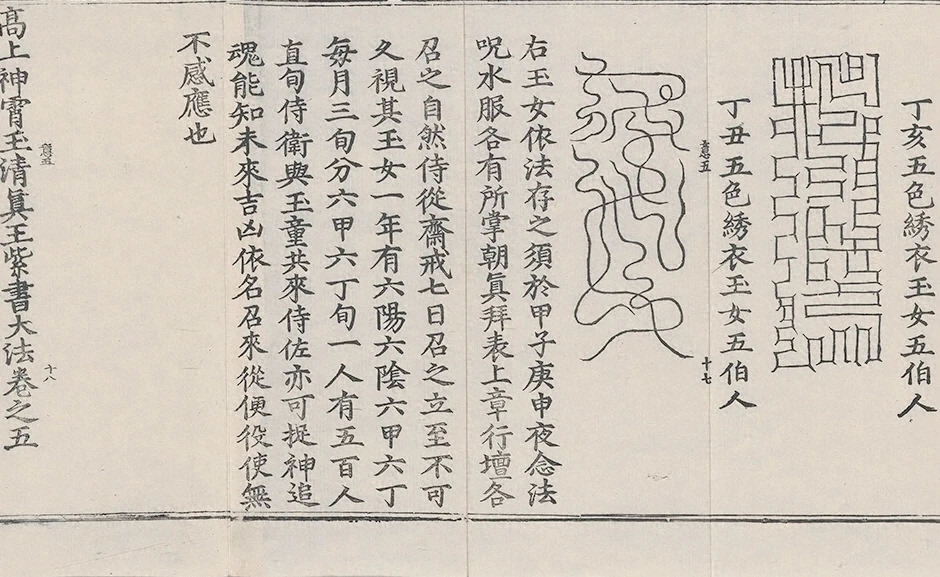 丁亥五色綉衣玉女五伯人
丁丑五色綉衣玉女五伯人
意五
十七
右玉女依法存之須於甲子庚申夜念法
呪水服各有所掌朝眞拜表上章行壇各
召之自然侍從齋戒七日召之立至不可
久視其玉女一年有六陽六陰六甲六丁
每月三旬分六甲六丁旬一人有五百人
直旬侍衛與玉童共來侍佐亦可捉神追
魂能知未來吉凶依名召來從便役使無
不感應也
高上神霄玉清眞王紫書大法卷之五
意五
十八